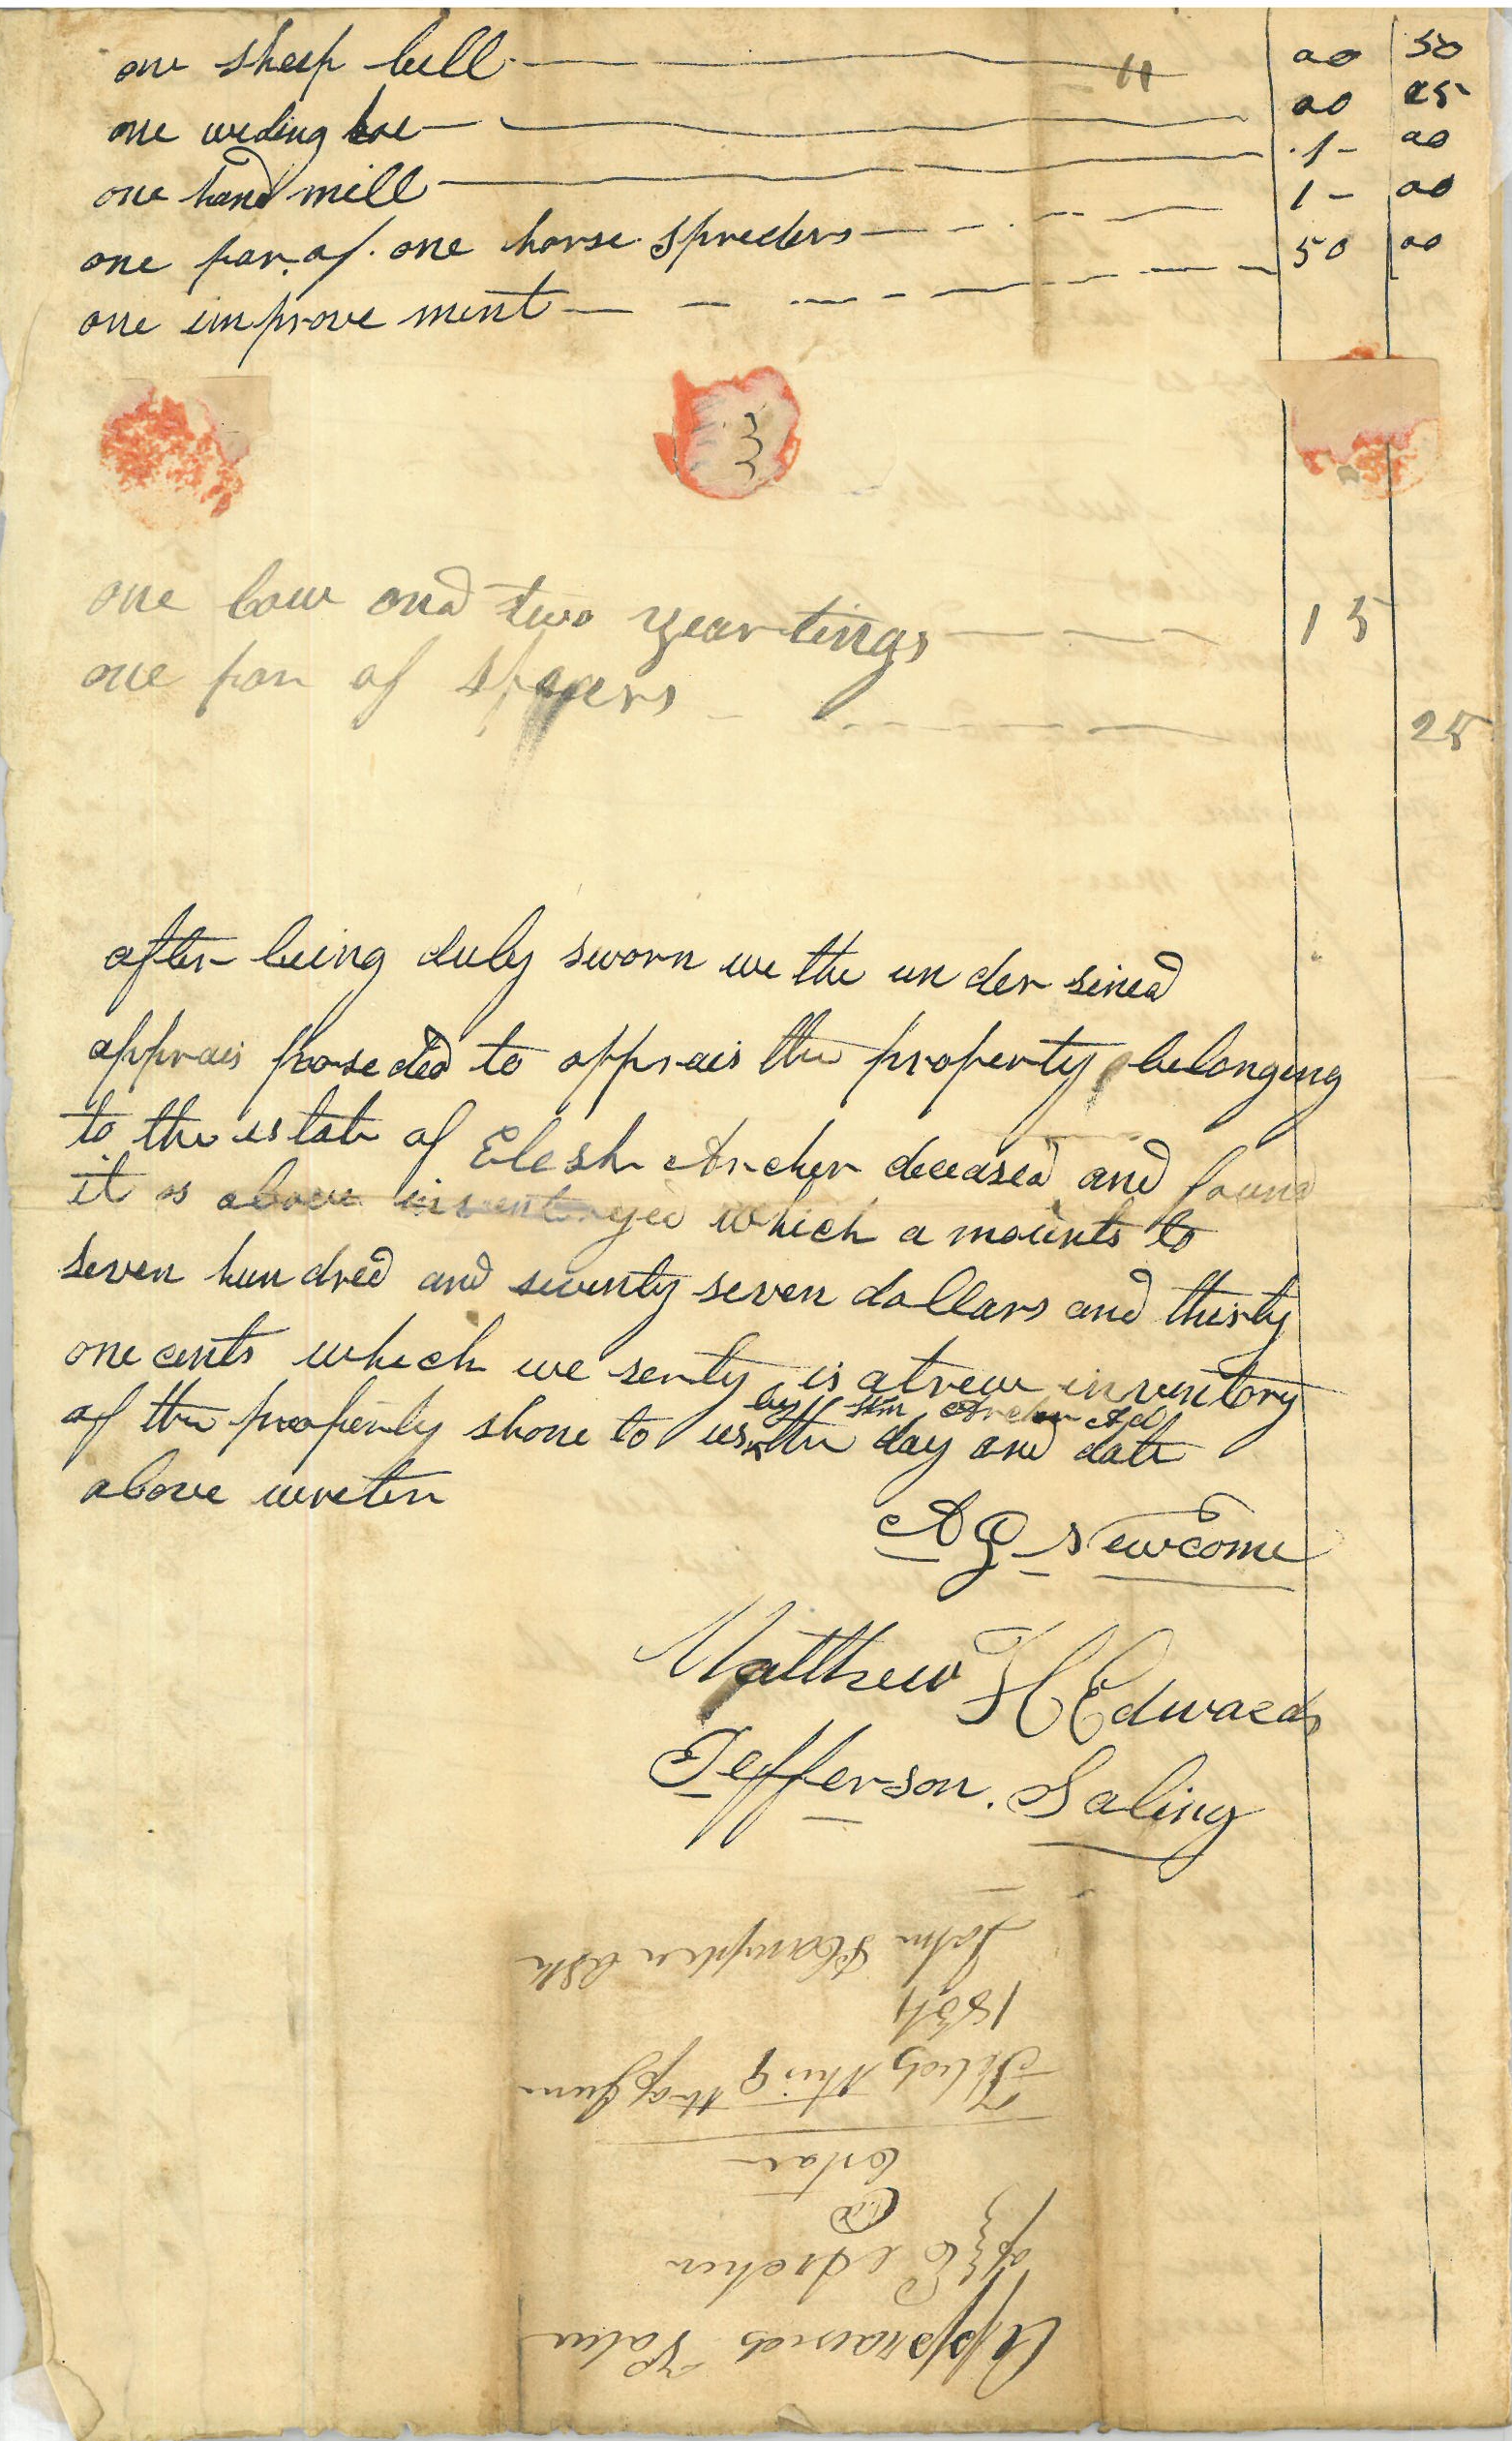 one sheep bell 00 50
one weding hoe 00 25
one hand mill 1- 00
one par of one horse spreders 1- 00
one improve ment 50 00
one cow and two yearlings 15
one par of 25
after being duly sworn we the un der sined
apprais proseded to apprais the property belonging
to the estate of Elesh Archer deceased and found
it as above inventoryed which a mounts to
seven hun dred and seventy seven dollars and thirty
one cents which we serty is a trew inventory
by Archer Ad
of the property shone to us the day and date
above wreten
A G Newcome
Matthew H Edwards
Jefferson Saling
Appraised Value
of E Archer
Estate
Filed this 9th of June
1834
John